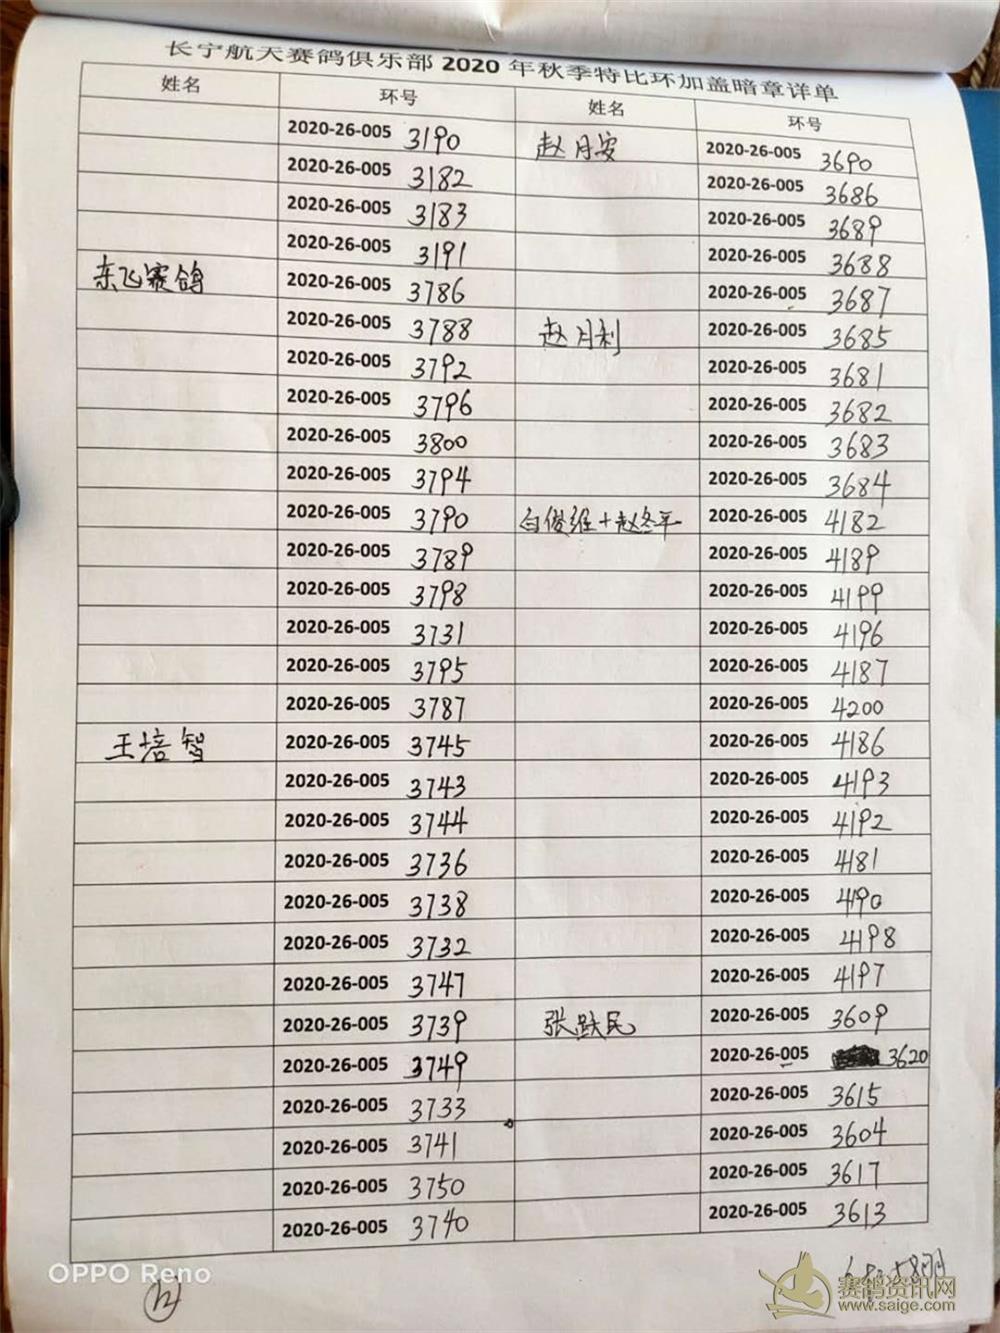 长宁航天赛鸽俱乐部 2020 年秋季特比环加盖暗章详单
姓名 环号 姓名 环号
2020-26-005 3190 赵月安 2020-26-005 3690
2020-26-005 3182 2020-26-005 3686
2020-26-005 3183 2020-26-005 3689
2020-26-005 3191 2020-26-005 3688
东飞赛鸽 2020-26-005 3786 2020-26-005 3687
2020-26-005 3788 赵月利 2020-26-005 3685
2020-26-005 3792 2020-26-005 3681
2020-26-005 3796 2020-26-005 3682
2020-26-005 3800 2020-26-005 3683
2020-26-005 3794 2020-26-005 3684
2020-26-005 3790 白俊维+赵冬平 2020-26-005 4182
2020-26-005 3789 2020-26-005 4189
2020-26-005 3798 2020-26-005 4199
2020-26-005 3731 2020-26-005 4196
2020-26-005 3795 2020-26-005 4187
2020-26-005 3787 2020-26-005 4200
王培智 2020-26-005 3745 2020-26-005 4186
2020-26-005 3743 2020-26-005 4193
2020-26-005 3744 2020-26-005 4192
2020-26-005 3736 2020-26-005 4181
2020-26-005 3738 2020-26-005 4190
2020-26-005 3732 2020-26-005 4198
2020-26-005 3747 2020-26-005 4197
2020-26-005 3739 张跃民 2020-26-005 3609
2020-26-005 3749 2020-26-005 3620
2020-26-005 3733 2020-26-005 3615
2020-26-005 3741 2020-26-005 3604
2020-26-005 3750 2020-26-005 3617
2020-26-005 3740 2020-26-005 3613
OPPO Reno
12
赛鸽资讯网
www.saige.com